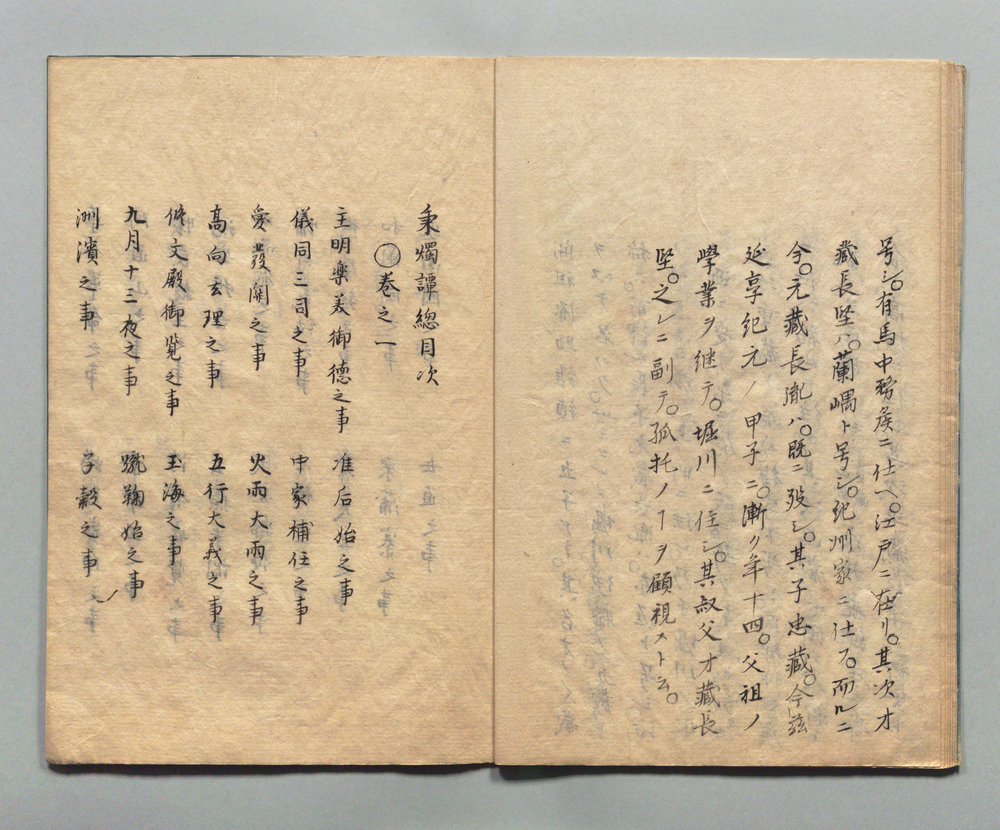 号シ。有馬中務侯ニ仕ヘ。江戸ニ在リ。其次才
藏長堅ハ。蘭嵎ト号シ。紀州家ニ仕フ。而ルニ
今。元藏長胤ハ。既ニ歿シ。其子忠藏。今茲
延享紀元ノ甲子ニ。漸ク年十四。父祖ノ
學業ヲ継テ。堀川ニ住シ。其叔父才藏長
堅。之レニ副テ。孤托ノヿヲ顧視スト云。
秉燭譚總目次
○卷之一
主明楽美御德之事 准后始之事
儀同三司之事 中家補任之事
愛發関之事 火雨大雨之事
高向玄理之事 五行大義之事
修文殿御覧之事 玉海之事
九月十三夜之事 蹴鞠始之事
洲濱之事 子穀之事